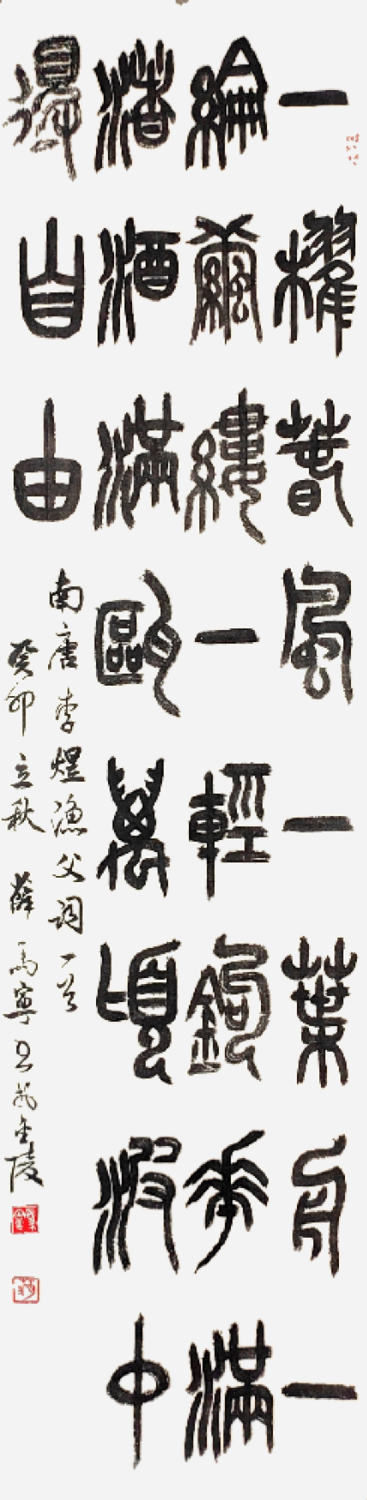 一櫂春風一葉舟一
綸繭縷一輕鉤華滿
渚酒滿甌萬頃波中
得自由
南唐李煜漁父詞一首
癸卯立秋 薛馬寧於金陵